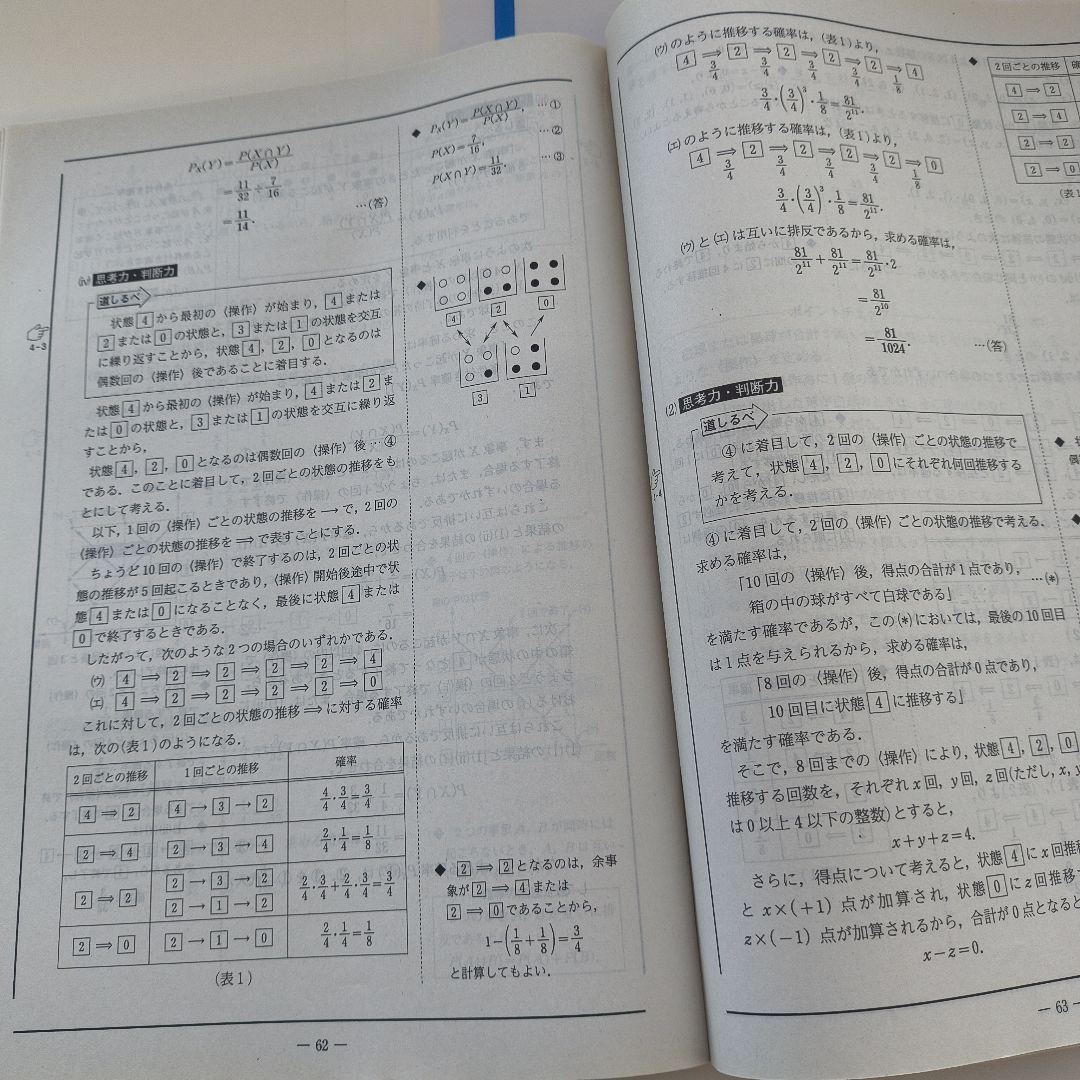 P_X(Y)=P(X∩Y)/P(X)
=11/32÷7/16
=11/14. …(答)
思考力・判断力
道しるべ
状態4から最初の〈操作〉が始まり，4または
2または0の状態と，3または1の状態を交互
に繰り返すことから，状態4，2，0となるのは
偶数回の〈操作〉後であることに着目する．
4-3
状態4から最初の〈操作〉が始まり，4または2ま
たは0の状態と，3または1の状態を交互に繰り返
すことから，
状態4，2，0となるのは偶数回の〈操作〉後…④
である．このことに着目して，2回ごとの状態の推移をも
とにして考える．
以下，1回の〈操作〉ごとの状態の推移を→で，2回の
〈操作〉ごとの状態の推移を⟹で表すことにする．
ちょうど10回の〈操作〉で終了するのは，2回ごとの状
態の推移が5回起こるときであり，〈操作〉開始後途中で状
態4または0になることなく，最後に状態4または
0で終了するときである．
したがって，次のような2つの場合のいずれかである．
(ウ) 4⟹2⟹2⟹2⟹2⟹4
(エ) 4⟹2⟹2⟹2⟹2⟹0
これに対して，2回ごとの状態の推移⟹に対する確率
は，次の(表1)のようになる．
2回ごとの推移 1回ごとの推移 確率
4⟹2 4→3→2 4/4・3/4=3/4
2⟹4 2→3→4 2/4・1/4=1/8
2⟹2 2→3→2 2→1→2 2/4・3/4+2/4・3/4=3/4
2⟹0 2→1→0 2/4・1/4=1/8
(表1)
◆ P_X(Y)=P(X∩Y)/P(X)， …①
P(X)=7/16， …②
P(X∩Y)=11/32． …③
◆
4 2 0
3 1
◆ 2⟹2となるのは，余事
象が2⟹4または
2⟹0であることから，
1−(1/8+1/8)=3/4
と計算してもよい．
— 62 —
(ウ)のように推移する確率は，(表1)より，
4⟹2⟹2⟹2⟹2⟹4
3/4 3/4 3/4 3/4 1/8
3/4・(3/4)³・1/8=81/2¹¹．
(エ)のように推移する確率は，(表1)より，
4⟹2⟹2⟹2⟹2⟹0
3/4 3/4 3/4 3/4 1/8
3/4・(3/4)³・1/8=81/2¹¹．
(ウ)と(エ)は互いに排反であるから，求める確率は，
81/2¹¹+81/2¹¹=81/2¹¹・2
=81/2¹⁰
=81/1024． …(答)
(2) 思考力・判断力
道しるべ
④に着目して，2回の〈操作〉ごとの状態の推移で
考えて，状態4，2，0にそれぞれ何回推移する
かを考える．
④に着目して，2回の〈操作〉ごとの状態の推移で考える．
求める確率は，
「10回の〈操作〉後，得点の合計が1点であり，
箱の中の球がすべて白球である」 …(*)
を満たす確率であるが，この(*)においては，最後の10回目
は1点を与えられるから，求める確率は，
「8回の〈操作〉後，得点の合計が0点であり，
10回目に状態4に推移する」
を満たす確率である．
そこで，8回までの〈操作〉により，状態4，2，0
推移する回数を，それぞれx回，y回，z回(ただし，x，y
は0以上4以下の整数)とすると，
x+y+z=4.
さらに，得点について考えると，状態4にx回推移
とx×(+1)点が加算され，状態0にz回推移す
z×(−1)点が加算されるから，合計が0点となると
x−z=0.
◆
2回ごとの推移
4⟹2
2⟹4
2⟹2
2⟹0
(表1
— 63 —